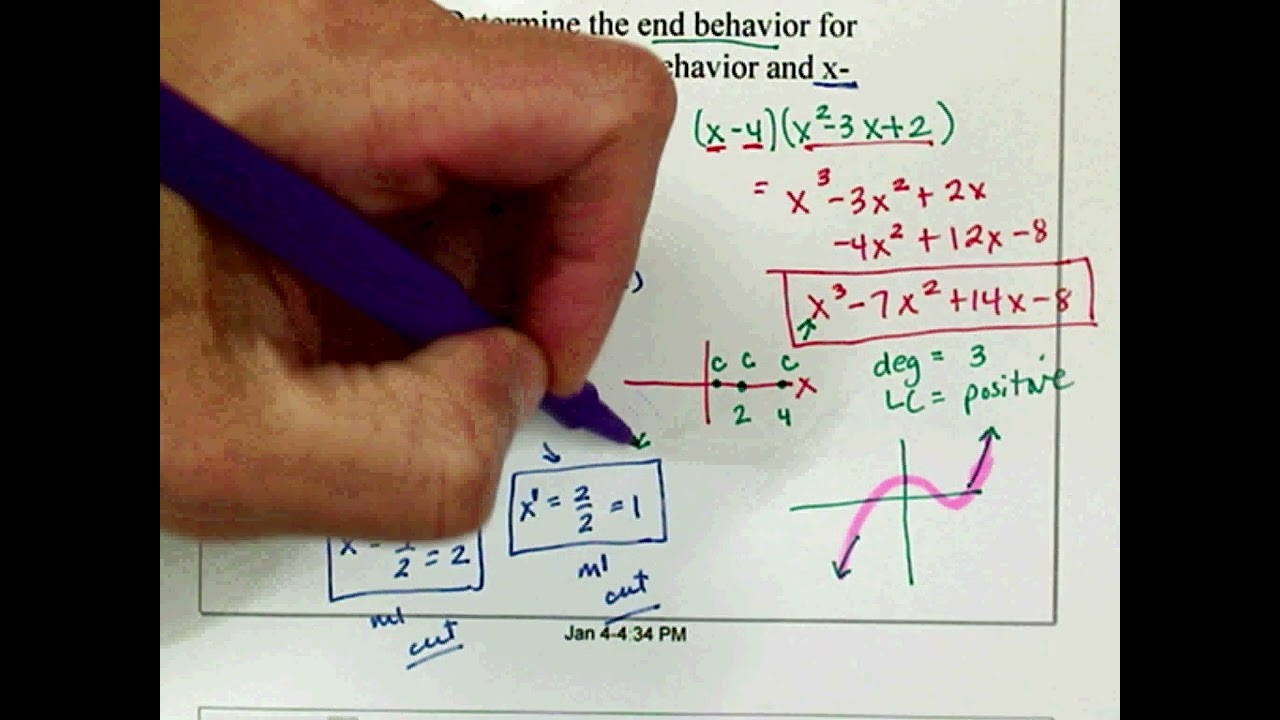 Determine the end behavior for
behavior and x-
(x-4)(x²-3x+2)
= x³-3x²+2x
-4x²+12x-8
x³-7x²+14x-8
deg = 3
LC = positive
c c c
x
2 4
x = 2/2 = 1
m1
cut
/2 = 2
m1
cut
Jan 4-4:34 PM